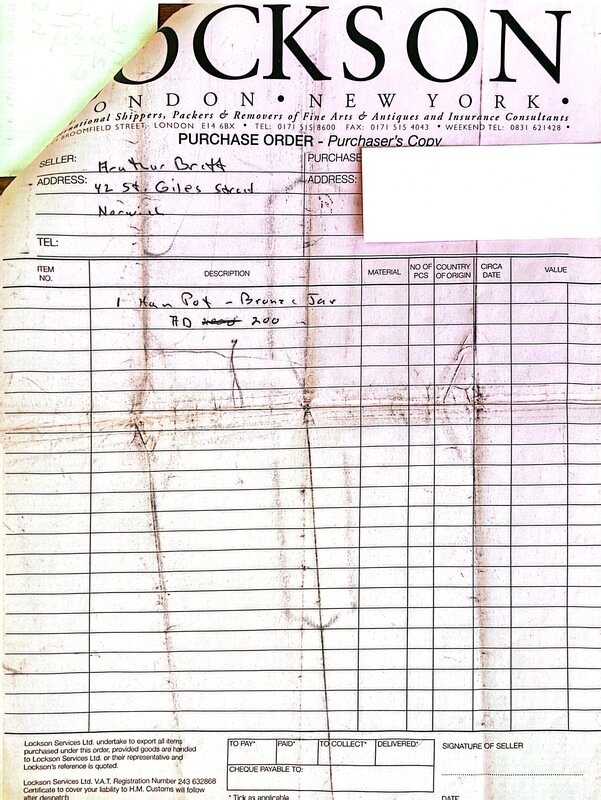 LOCKSON
LONDON • NEW YORK •
International Shippers, Packers & Removers of Fine Arts & Antiques and Insurance Consultants
BROOMFIELD STREET, LONDON E14 6BX • TEL: 0171 515 8600 FAX: 0171 515 4043 • WEEKEND TEL: 0831 621428 •
PURCHASE ORDER - Purchaser's Copy
SELLER: Arthur Brett PURCHASE
ADDRESS: 42 St. Giles Street ADDRESS:
Norwich
TEL:
ITEM NO. DESCRIPTION MATERIAL NO OF PCS COUNTRY OF ORIGIN CIRCA DATE VALUE
1 Han Pot - Bronze Jar
AD 200
Lockson Services Ltd. undertake to export all items
purchased under this order, provided goods are handed
to Lockson Services Ltd. or their representative and
Lockson's reference is quoted.
Lockson Services Ltd. V.A.T. Registration Number 243 632868
Certificate to cover your liability to H.M. Customs will follow
after despatch
TO PAY* PAID* TO COLLECT* DELIVERED*
CHEQUE PAYABLE TO:
* Tick as applicable
SIGNATURE OF SELLER
DATE